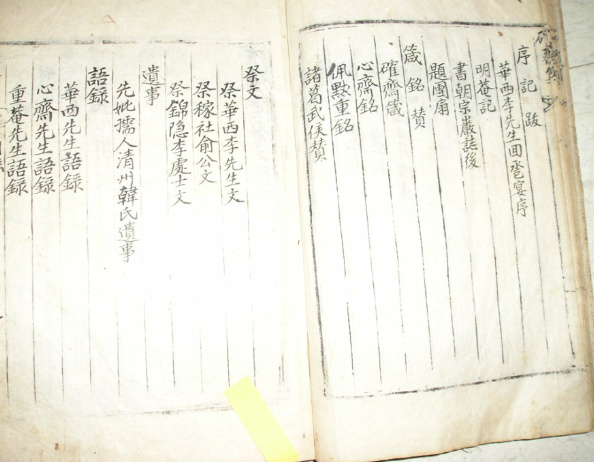 序 記 跋
華西李先生回巹宴序
明菴記
書朝宗巖誌後
題團扇
箴 銘 賛
確齋箴
心齋銘
佩黙重銘
諸葛武侯賛
祭文
祭華西李先生文
祭稼社俞公文
祭錦隐李處士文
遺事
先妣孺人清州韓氏遺事
語録
華西先生語録
心齋先生語録
重菴先生語録